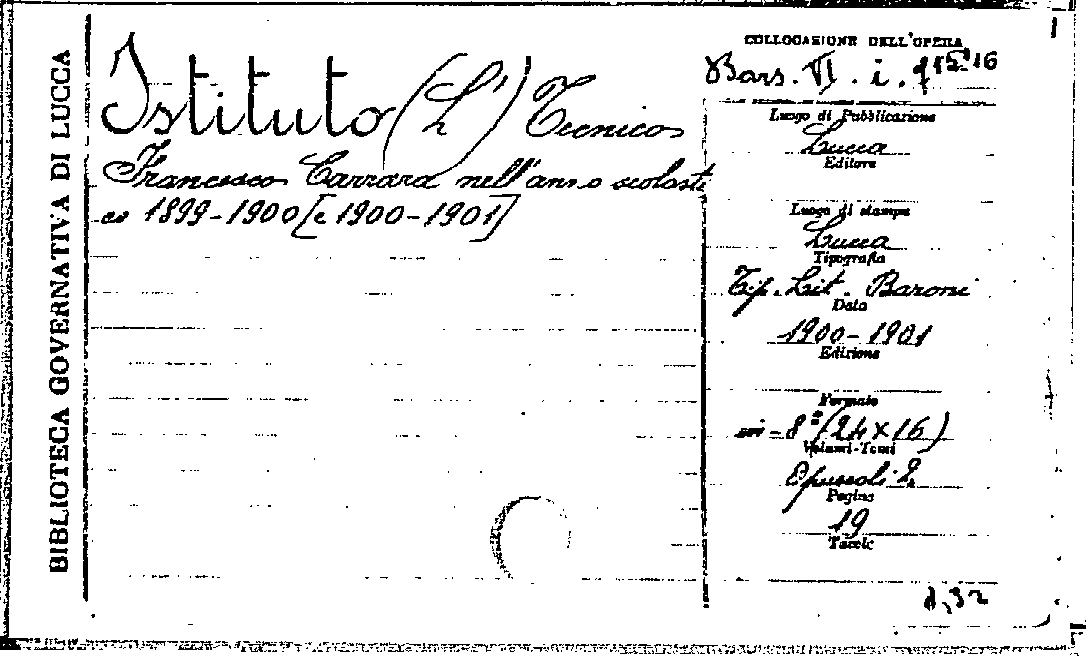 BIBLIOTECA GOVERNATIVA DI LUCCA
Istituto (L') Tecnico
Francesco Carrara nell'anno scolasti
co 1899-1900 [e 1900-1901]
COLLOCAZIONE DELL'OPERA
Bars. VI. i. 9 15-16
Luogo di Pubblicazione
Lucca
Editore
Luogo di stampa
Lucca
Tipografia
Tip. Lit. Baroni
Data
1900-1901
Edizione
Formato
in-8° (24 x 16)
Volumi-Tomi
Opuscoli 2
Pagine
19
Tavole